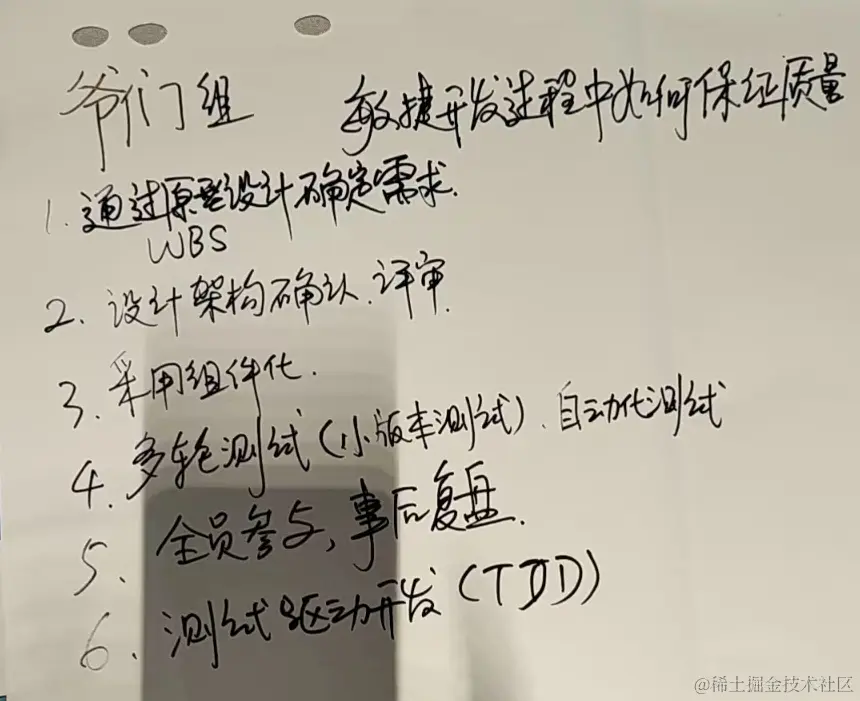 爷们组 敏捷开发过程中如何保证质量
1. 通过原型设计确定需求.
WBS
2. 设计架构确认、评审.
3. 采用组件化.
4. 多轮测试(小版本测试)、自动化测试
5. 全员参与,事后复盘.
6. 测试驱动开发(TDD)
@稀土掘金技术社区